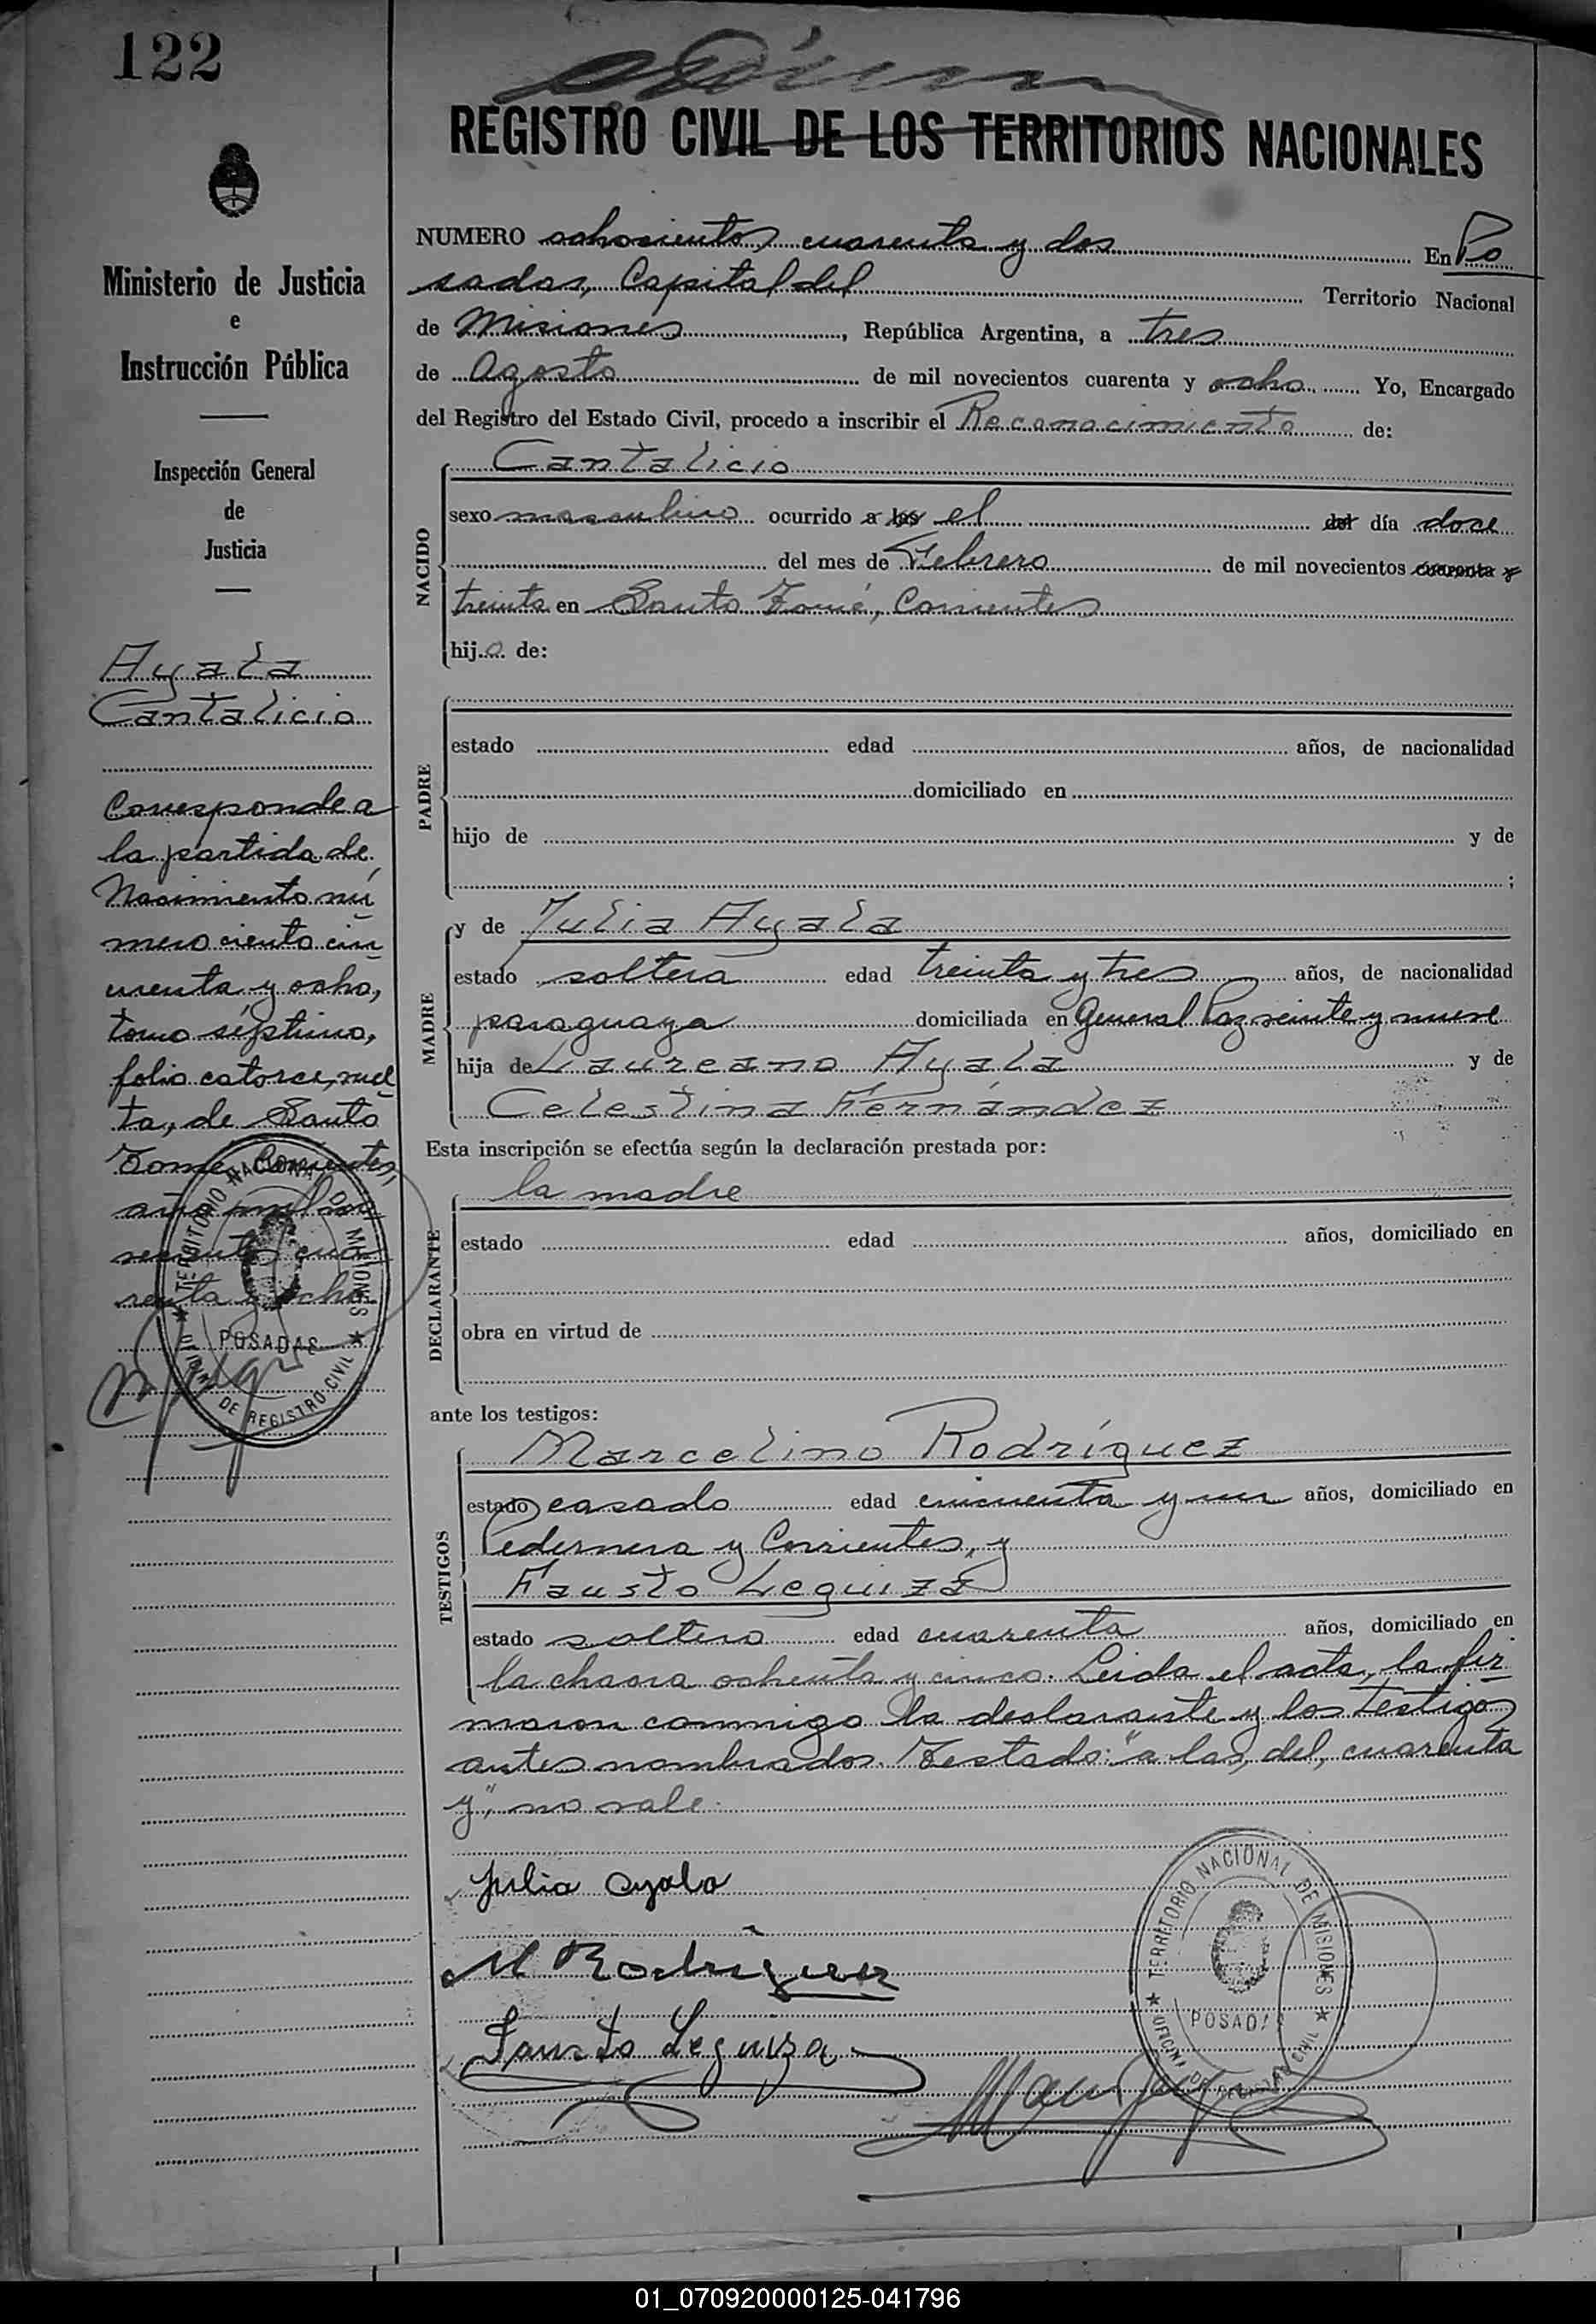 122
REGISTRO CIVIL DE LOS TERRITORIOS NACIONALES
Ministerio de Justicia
e
Instrucción Pública
Inspección General
de
Justicia
Ayala
Cantalicio
Corresponde a
la partida de
Nacimiento nú
mero ciento cin
cuenta y ocho,
tomo séptimo,
folio catorce, vuel
ta, de Santo
Tomé, Corrientes,
año mil no
vecientos cua
renta y ocho
TERRITORIO NACIONAL DE MISIONES
POSADAS
OFICINA DE REGISTRO CIVIL
NUMERO ochocientos cuarenta y dos En Po
sadas, Capital del Territorio Nacional
de Misiones, República Argentina, a tres
de Agosto de mil novecientos cuarenta y ocho Yo, Encargado
del Registro del Estado Civil, procedo a inscribir el Reconocimiento de:
NACIDO
Cantalicio
sexo masculino ocurrido a las el del día doce
del mes de Febrero de mil novecientos cuarenta y
treinta en Santo Tomé, Corrientes
hijo de:
PADRE
estado edad años, de nacionalidad
domiciliado en
hijo de y de
;
MADRE
y de Julia Ayala
estado soltera edad treinta y tres años, de nacionalidad
paraguaya domiciliada en General Paz veinte y nueve
hija de Laureano Ayala y de
Celestina Fernández
Esta inscripción se efectúa según la declaración prestada por:
DECLARANTE
la madre
estado edad años, domiciliado en
obra en virtud de
ante los testigos:
TESTIGOS
Marcelino Rodríguez
estado casado edad cincuenta y un años, domiciliado en
Pedernera y Corrientes, y
Fausto Leguiza
estado soltero edad cuarenta años, domiciliado en
la chacra ochenta y cinco. Leida el acta, la fir
maron conmigo la declarante y los testigos
antes nombrados. Testado: "a las, del, cuarenta
y", no vale.
Julia Ayala
M Rodriguez
Fausto Leguiza
TERRITORIO NACIONAL DE MISIONES
POSADAS
OFICINA DE REGISTRO CIVIL
01_070920000125-041796